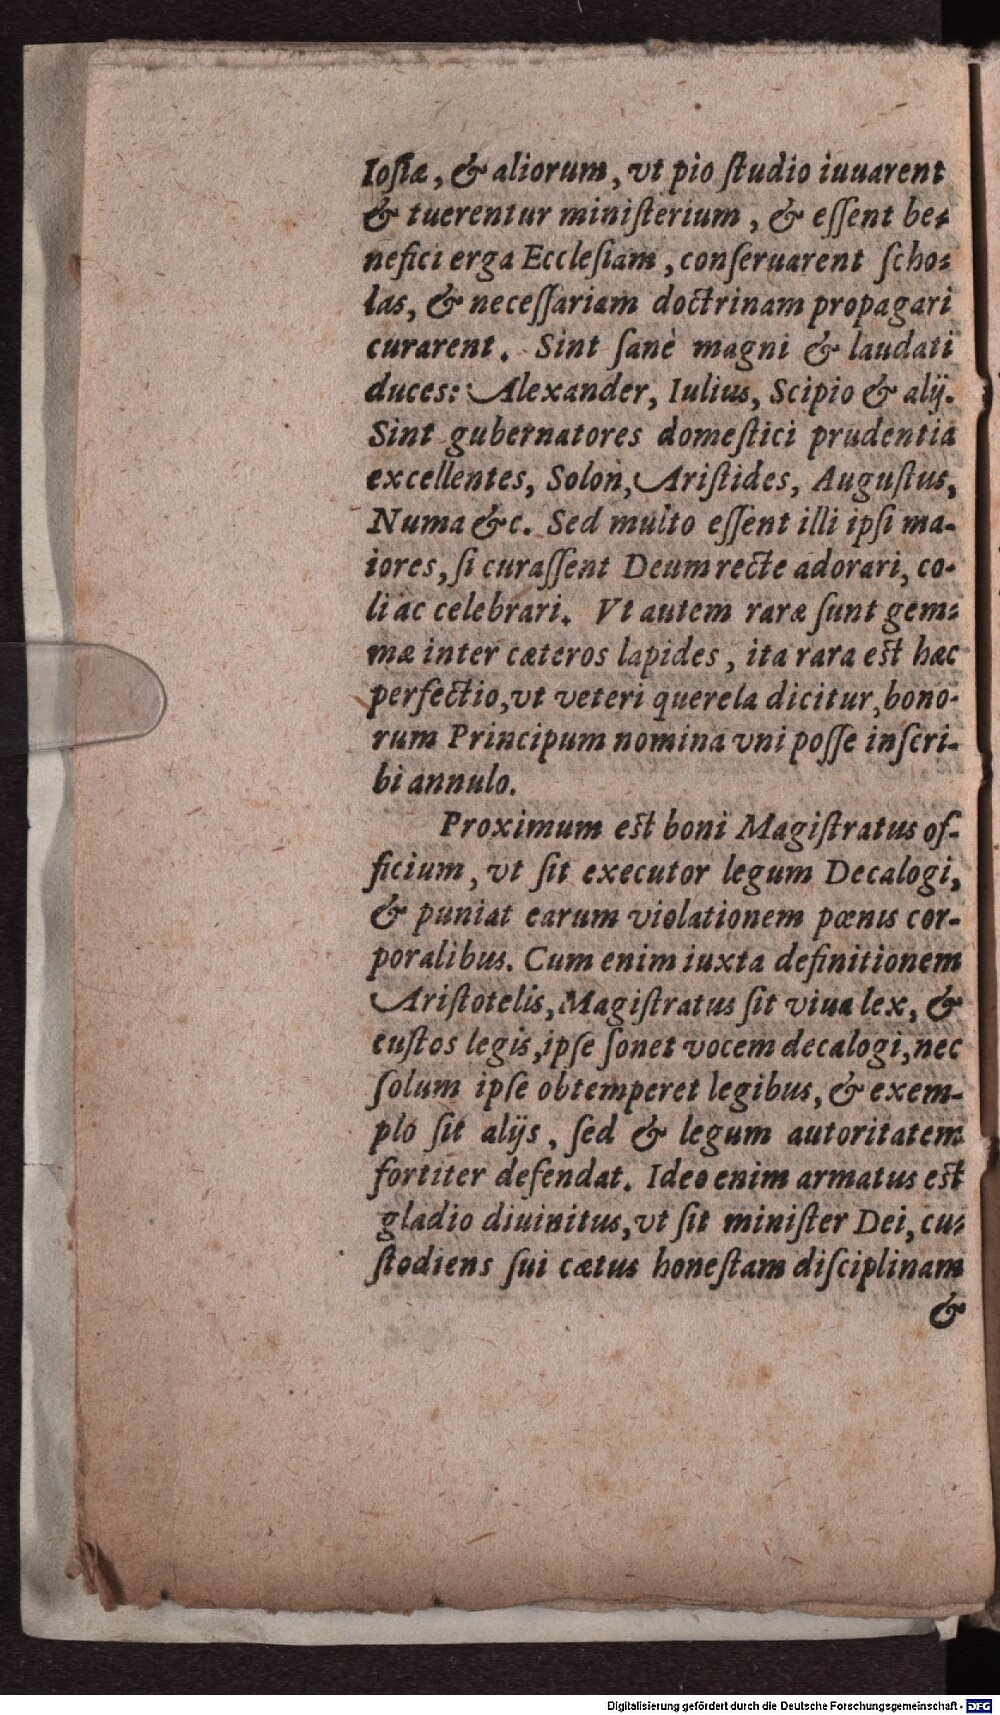 Iosiæ, & aliorum, vt pio ſtudio iuuarent
& tuerentur miniſterium, & eſſent be-
nefici erga Eccleſiam, conſeruarent ſcho-
las, & neceſſariam doctrinam propagari
curarent. Sint ſanè magni & laudati
duces: Alexander, Iulius, Scipio & alij.
Sint gubernatores domeſtici prudentia
excellentes, Solon, Ariſtides, Auguſtus,
Numa &c. Sed multo eſſent illi ipſi ma-
iores, ſi curaſſent Deum recte adorari, co-
li ac celebrari. Vt autem raræ ſunt gem-
mæ inter cæteros lapides, ita rara est hæc
perfectio, vt veteri querela dicitur, bono-
rum Principum nomina vni poſſe inſcri-
bi annulo.
Proximum est boni Magiſtratus of-
ficium, vt ſit executor legum Decalogi,
& puniat earum violationem pœnis cor-
poralibus. Cum enim iuxta definitionem
Ariſtotelis, Magiſtratus ſit viua lex, &
cuſtos legis, ipſe ſonet vocem decalogi, nec
ſolum ipſe obtemperet legibus, & exem-
plo ſit alijs, ſed & legum autoritatem
fortiter defendat. Ideo enim armatus est
gladio diuinitus, vt ſit miniſter Dei, cu-
ſtodiens ſui cætus honeſtam diſciplinam
&
Digitalisierung gefördert durch die Deutsche Forschungsgemeinschaft - DFG